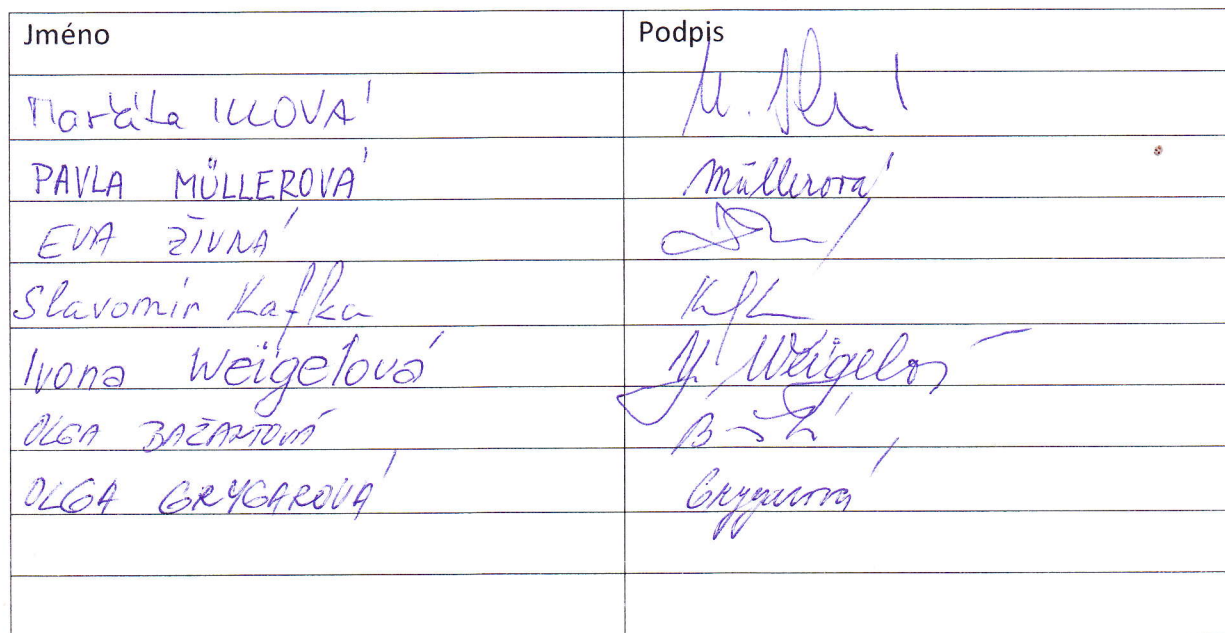 Jméno Podpis
Markéta ILLOVÁ M.
PAVLA MÜLLEROVÁ Müllerová
EVA ŽIVNÁ
Slavomír Kafka
Ivona Weigelová Weigelová
OLGA BAŽANTOVÁ
OLGA GRYGAROVÁ Grygarová